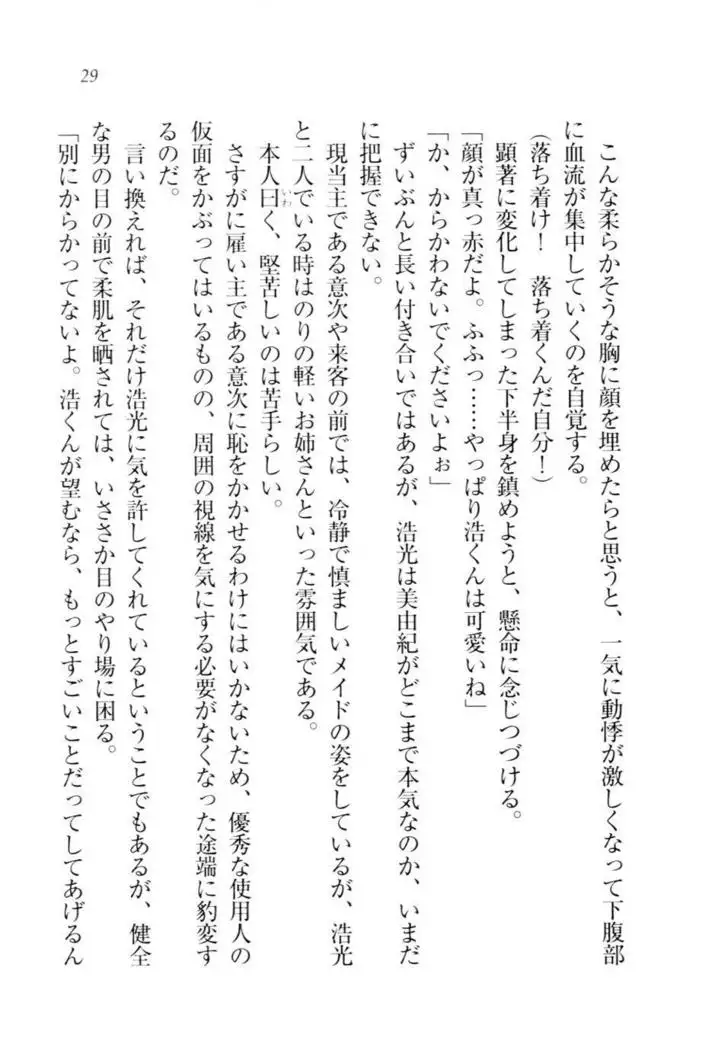 29
こんな柔らかそうな胸に顔を埋めたらと思うと、一気に動悸が激しくなって下腹部
に血流が集中していくのを自覚する。
(落ち着け!　落ち着くんだ自分!)
顕著に変化してしまった下半身を鎮めようと、懸命に念じつづける。
「顔が真っ赤だよ。ふふっ……やっぱり浩くんは可愛いね」
「か、からかわないでくださいよぉ」
ずいぶんと長い付き合いではあるが、浩光は美由紀がどこまで本気なのか、いまだ
に把握できない。
現当主である意次や来客の前では、冷静で慎ましいメイドの姿をしているが、浩光
と二人でいる時はのりの軽いお姉さんといった雰囲気である。
本人曰く、堅苦しいのは苦手らしい。
さすがに雇い主である意次に恥をかかせるわけにはいかないため、優秀な使用人の
仮面をかぶってはいるものの、周囲の視線を気にする必要がなくなった途端に豹変す
るのだ。
言い換えれば、それだけ浩光に気を許してくれているということでもあるが、健全
な男の目の前で柔肌を晒されては、いささか目のやり場に困る。
「別にからかってないよ。浩くんが望むなら、もっとすごいことだってしてあげるん